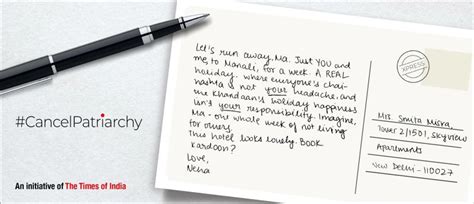 Let's run away, Ma. Just YOU and
me, to Manali, for a week. A REAL
holiday. where everyone's chai-
nashta is not your headache. and
the Khandaan's holiday happiness
isn't your responsibility. Imagine,
Ma - one whole week of not living
for others.
This hotel looks lovely. BOOK
kardoon?
Love,
Neha
XPRESS
Mrs. Smita Misra,
Tower 2/1501, Skyview
Apartments
New Delhi - 110027
#CancelPatriarchy
An initiative of The Times of India